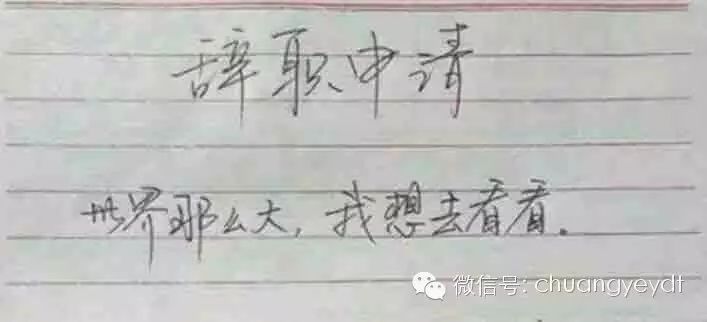 辞职申请
世界那么大，我想去看看.
微信号: chuangyeydt